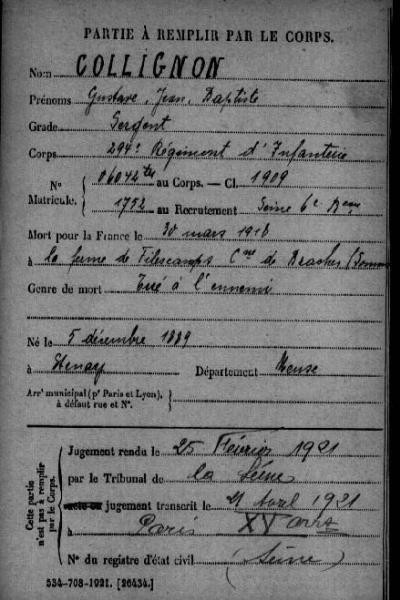 PARTIE À REMPLIR PAR LE CORPS.
Nom COLLIGNON
Prénoms Gustave, Jean, Baptiste
Grade Sergent
Corps 294e Régiment d'Infanterie
N° Matricule. 06042 au Corps. — Cl. 1909
1752 au Recrutement Seine 6e Beau
Mort pour la France le 30 mars 1918
à la ferme de Filescamps Cne de Braches (Somme
Genre de mort Tué à l'ennemi
Né le 5 décembre 1889
à Département Meuse
Arrt municipal (pr Paris et Lyon),
à défaut rue et N°.
Cette partie n'est pas à remplir par le Corps.
Jugement rendu le 25 Février 1921
par le Tribunal de la Seine
acte ou jugement transcrit le 21 Avril 1921
à Paris XV arrt
N° du registre d'état civil (Seine)
534-708-1921. [26434.]